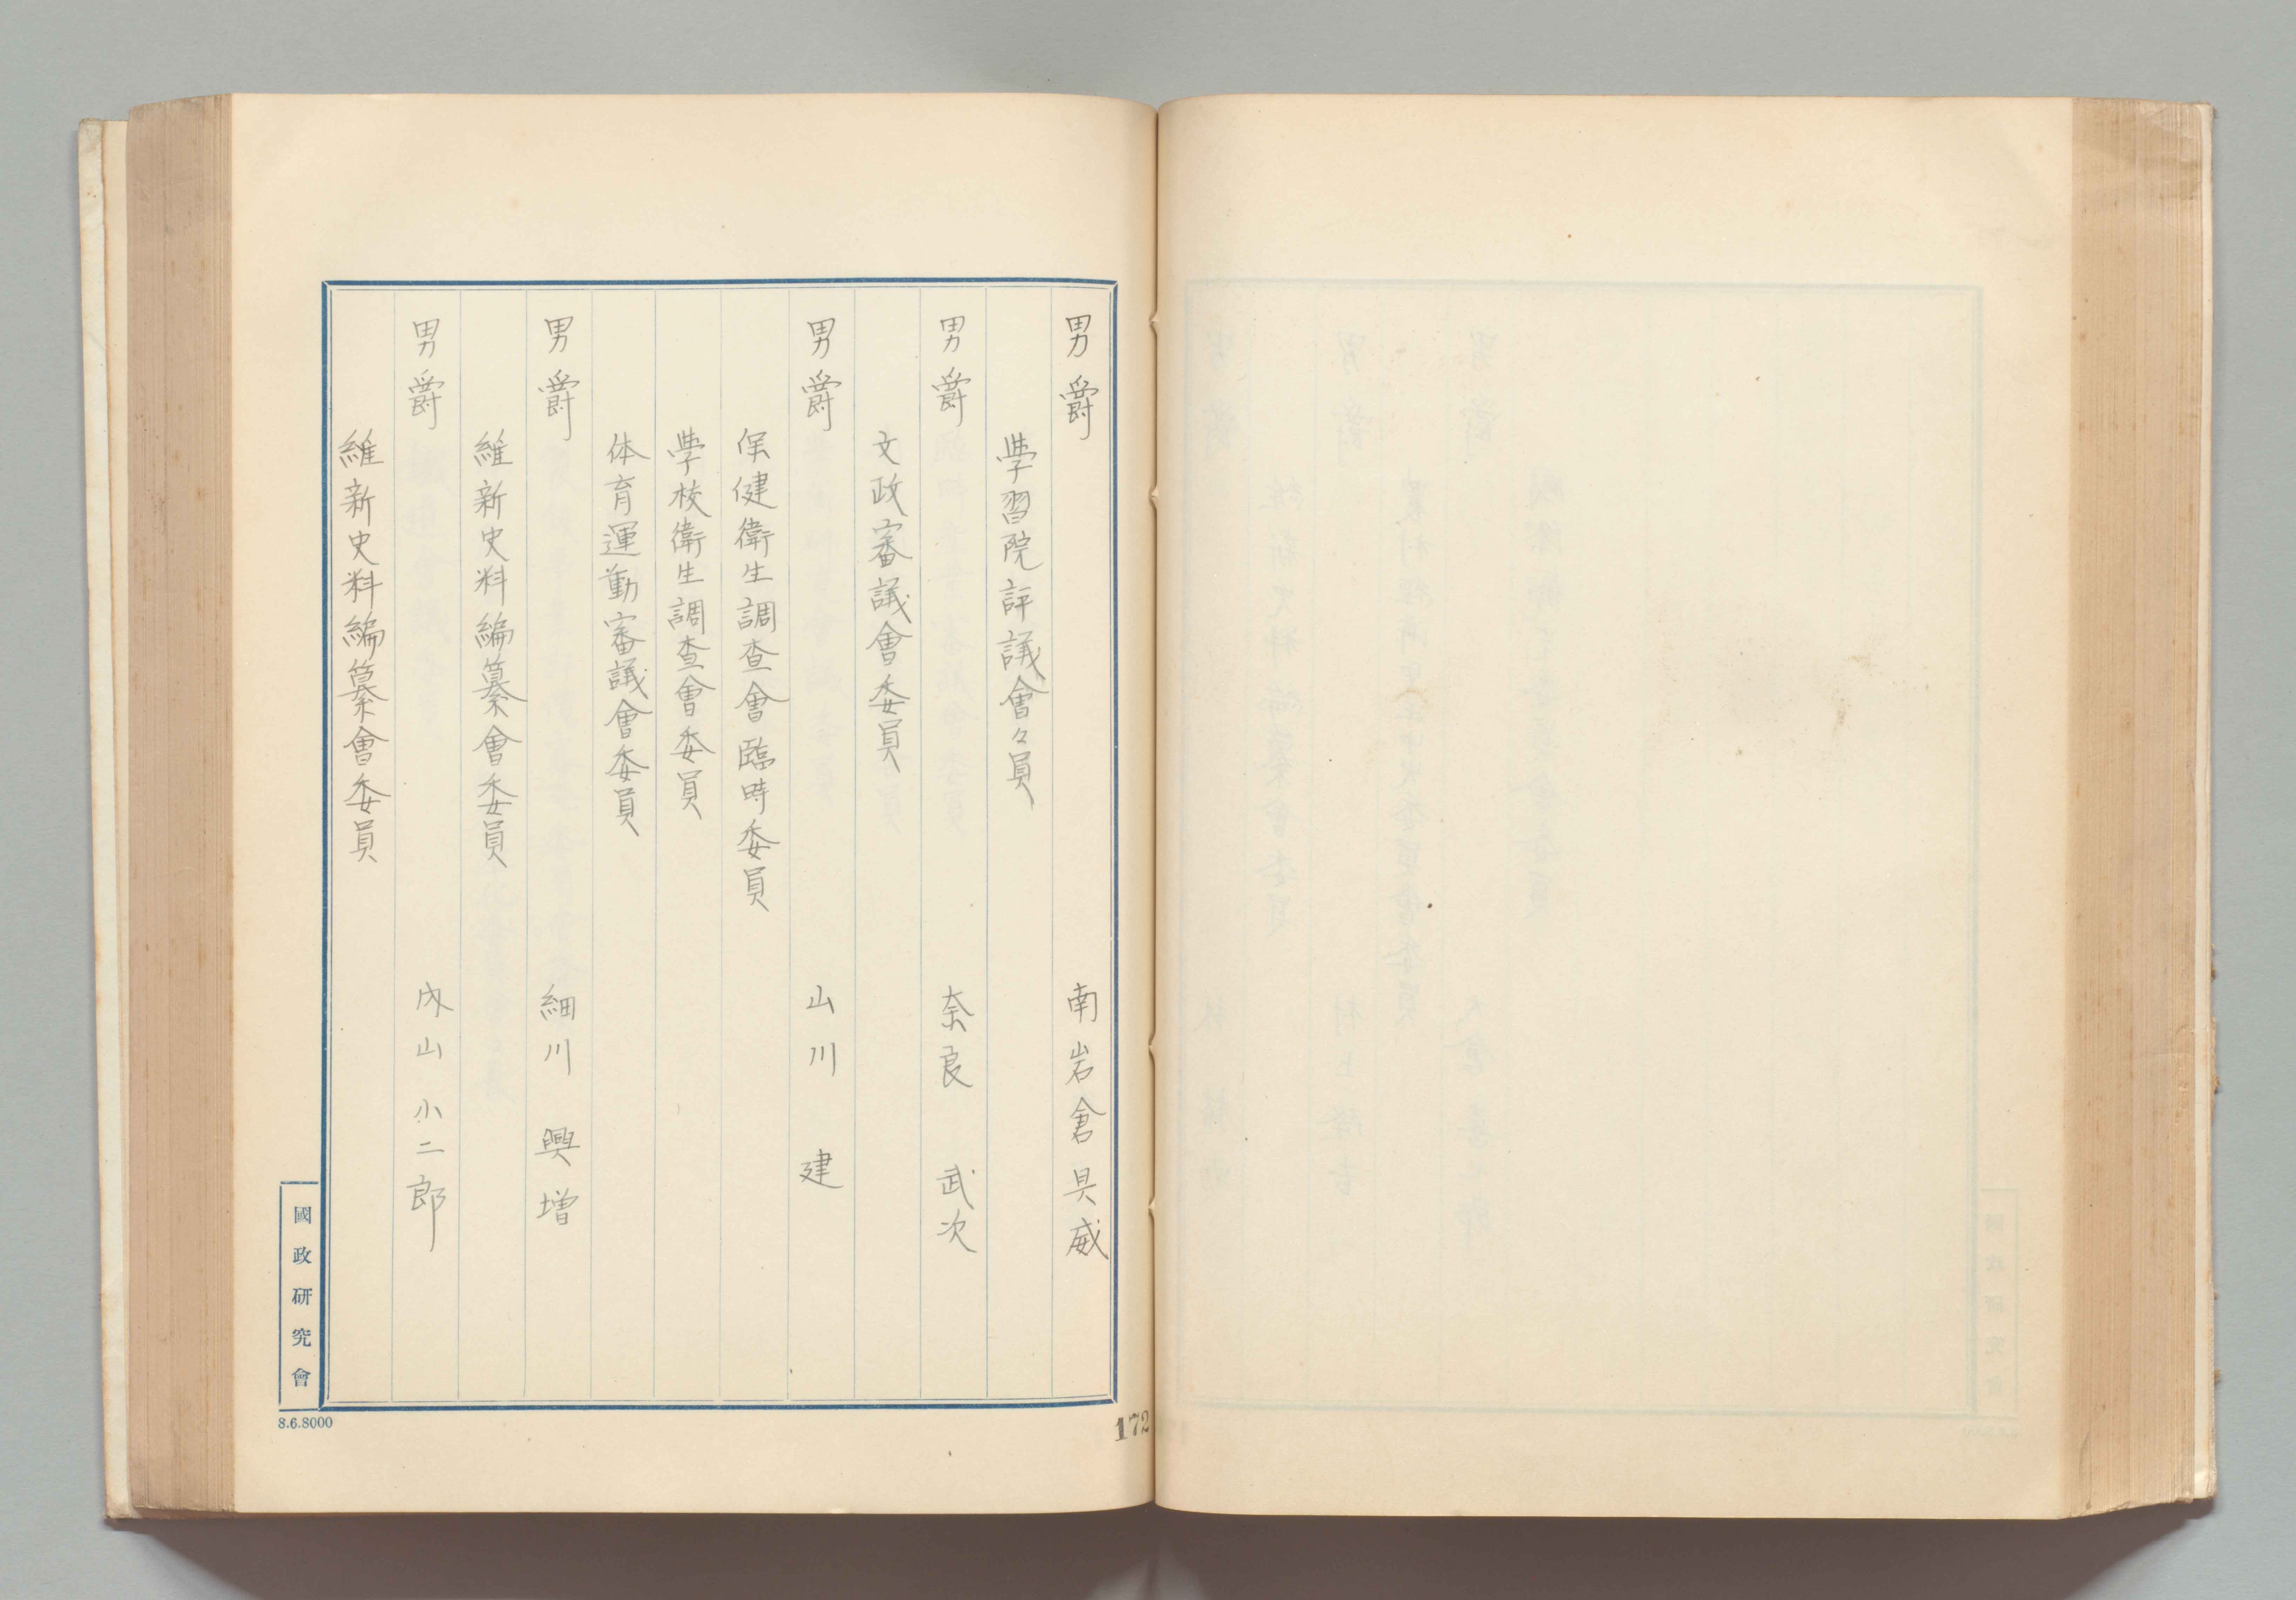 男爵 南岩倉具威
學習院評議會々員
男爵 奈良武次
文政審議會委員
男爵 山川建
保健衛生調査會臨時委員
學校衛生調査會委員
体育運動審議會委員
男爵 細川興増
維新史料編纂會委員
男爵 内山小二郎
維新史料編纂會委員
國政研究會
8.6.8000
172